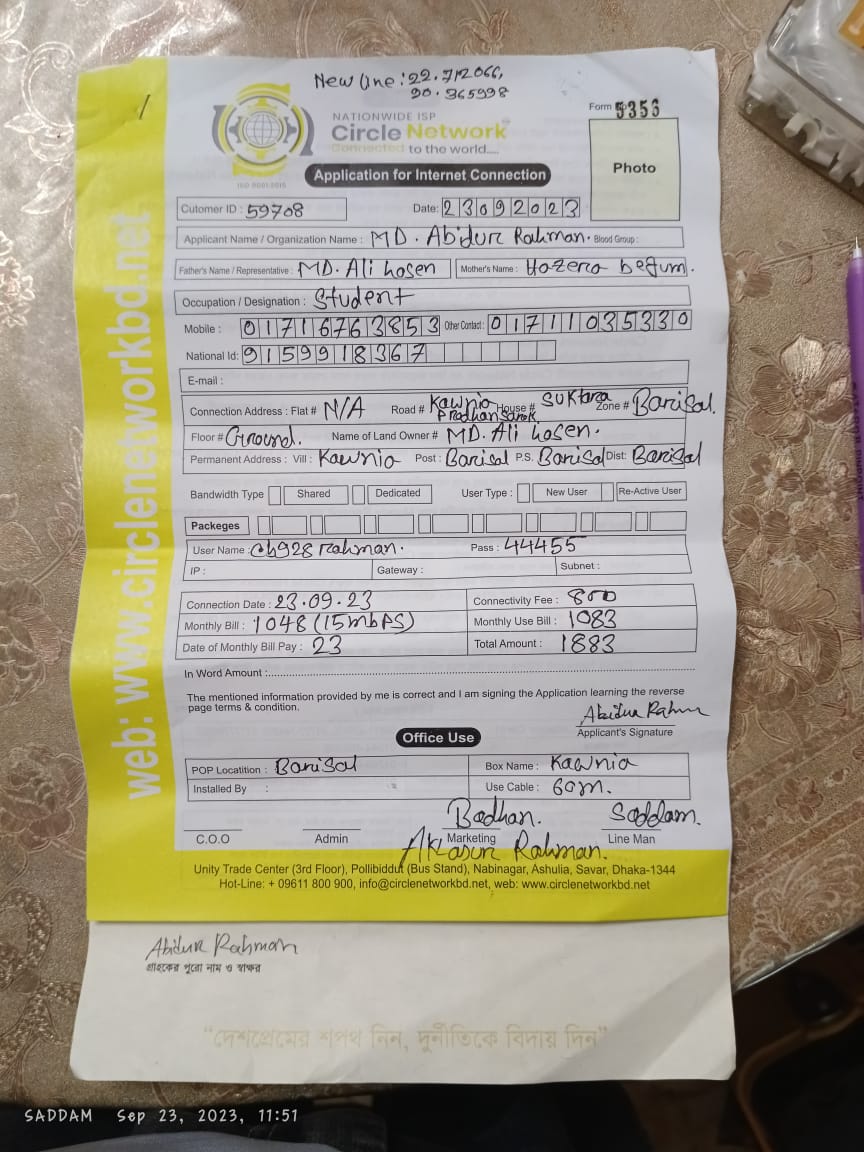 New line : 22.712066,
90.365998
NATIONWIDE ISP
Circle Network
Connected to the world....
ISO 9001:2015
Form 5353
Photo
Application for Internet Connection
Cutomer ID : 59708 Date: 23092023
Applicant Name / Organization Name : MD. Abidur Rahman. Blood Group :
Father's Name / Representative : MD. Ali hosen Mother's Name : Hazera begum.
Occupation / Designation : Student
Mobile : 01716763853 Other Contact : 01711035330
National Id: 9159918367
E-mail :
Connection Address : Flat # N/A Road # Kawnia Pradhan Sarok House # Suktara Zone # Barisal.
Floor # Ground. Name of Land Owner # MD. Ali hosen.
Permanent Address : Vill : Kawnia Post : Barisal P.S. Barisal Dist: Barisal
Bandwidth Type Shared Dedicated User Type : New User Re-Active User
Packeges
User Name : ch928 rahman. Pass : 44455
IP : Gateway : Subnet :
Connection Date : 23.09.23 Connectivity Fee : 800
Monthly Bill : 1048 (15mbPS) Monthly Use Bill : 1083
Date of Monthly Bill Pay : 23 Total Amount : 1883
In Word Amount :
The mentioned information provided by me is correct and I am signing the Application learning the reverse
page terms & condition.
Abidur Rahm
Applicant's Signature
Office Use
POP Locatition : Barisal Box Name : Kawnia
Installed By : Use Cable : 60m.
Badhan. Saddam.
C.O.O Admin Marketing Line Man
Rahman.
Unity Trade Center (3rd Floor), Pollibiddut (Bus Stand), Nabinagar, Ashulia, Savar, Dhaka-1344
Hot-Line: + 09611 800 900, info@circlenetworkbd.net, web: www.circlenetworkbd.net
web: www.circlenetworkbd.net
Abidur Rahman
গ্রাহকের পুরো নাম ও স্বাক্ষর
“দেশপ্রেমের শপথ নিন, দুর্নীতিকে বিদায় দিন”
SADDAM Sep 23, 2023, 11:51